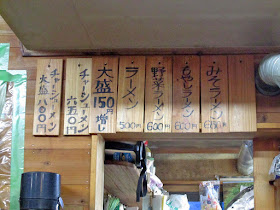 みそラーメン 600円
もやしラーメン 600円
野菜ラーメン 600円
ラーメン 500円
大盛 150円 増し
チャーシューメン 六五〇円
チャーシューメン 大盛 八〇〇円